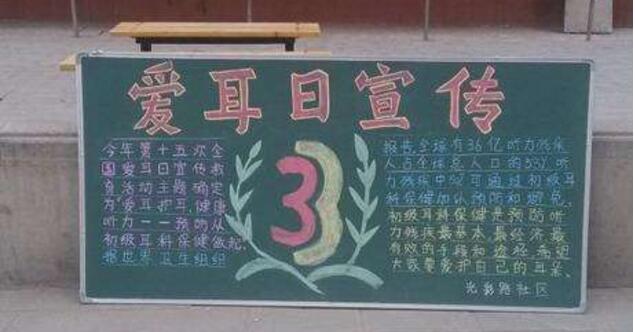 爱耳日宣传
今年第十五次全
国爱耳日宣传教
育活动主题确定
为“爱耳护耳,健康
听力——预防从
初级耳科保健做起。
据世界卫生组织
3
报告全球有36亿听力残疾
人占全球总人口的5.3%听
力残疾中50%可通过初级耳
科保健加以预防和避免。
初级耳科保健是预防听
力残疾最基本,最经济最
有效的手段和途经,希望
大家要爱护自己的耳朵。
光彩路社区